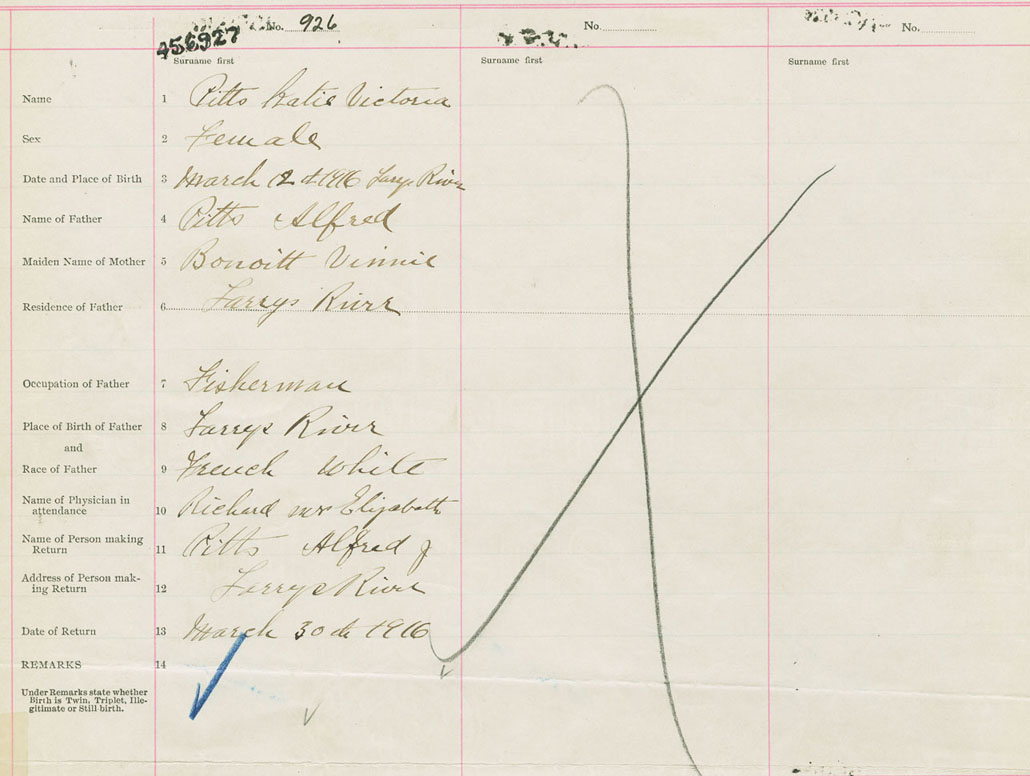 No. 926 No. No.
456927
Surname first Surname first Surname first
Name 1 Pitts Katie Victoria
Sex 2 Female
Date and Place of Birth 3 March 2d 1916 Larrys River
Name of Father 4 Pitts Alfred
Maiden Name of Mother 5 Bonoitt Vinnie
Residence of Father 6 Larrys River
Occupation of Father 7 Fisherman
Place of Birth of Father 8 Larrys River
and
Race of Father 9 French White
Name of Physician in
attendance 10 Richard mrs Elizabeth
Name of Person making
Return 11 Pitts Alfred J
Address of Person mak-
ing Return 12 Larrys River
Date of Return 13 March 30th 1916
REMARKS 14
Under Remarks state whether
Birth is Twin, Triplet, Ille-
gitimate or Still-birth.